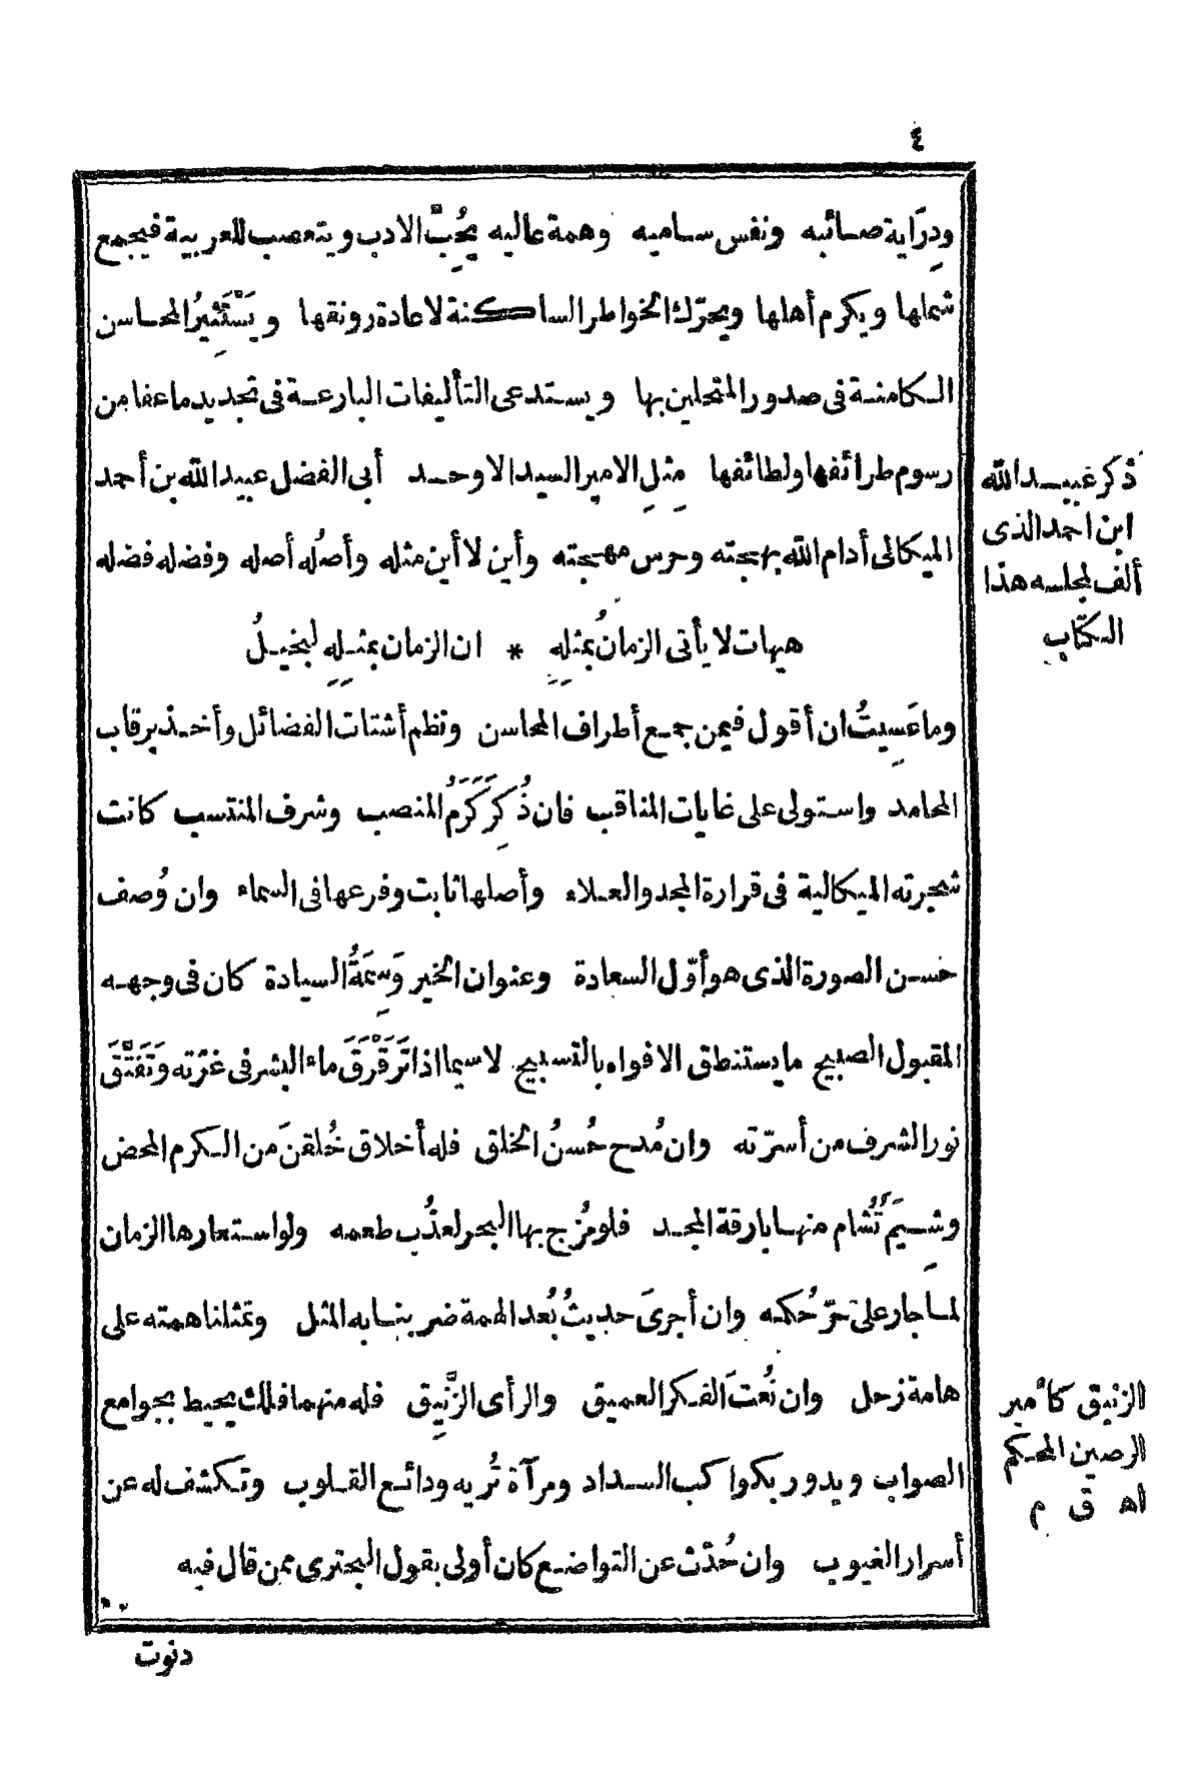 ٤
ودِرَاية صائبه ونفس ساميه وهمة عاليه يُحِبُّ الادب ويتعصب للعربية فيجمع
شملها ويكرم أهلها ويحرّك الخواطر الساكنة لاعادة رونقها ويَسْتَثِيرُ المحاسن
الكامنة فى صدور المتحلين بها ويستدعى التأليفات البارعة فى تجديد ما عفا من
رسوم طرائفها ولطائفها مِثلِ الامير السيد الاوحد أبى الفضل عبيد الله بن أحمد
الميكالى أدام الله بهجته وحرس مهجته وأين لا أين مثله وأصُله أصله وفضله فضله
هيهات لا يأتى الزمانُ بمثلِهِ * ان الزمان بمثلِهِ لبخيلُ
وما عَسِيتُ ان أقول فيمن جمع أطراف المحاسن ونظم أشتات الفضائل وأخذ برقاب
المحامد واستولى على غايات المناقب فان ذُكِرَ كَرَمُ المنصب وشرف المنتسب كانت
شجرته الميكالية فى قرارة المجد والعلاء وأصلها ثابت وفرعها فى السماء وان وُصف
حسن الصورة الذى هو أوّل السعادة وعنوان الخير وَسِمَةُ السيادة كان فى وجهه
المقبول الصبيح ما يستنطق الافواه بالتسبيح لا سيما اذا تَرَقْرَقَ ماء البشر فى غرّته وَتَفَتَّقَ
نور الشرف من أسرّته وان مُدح حُسنُ الخلق فله أخلاق خُلقنَ من الكرم المحض
وشِيَمٌ تُشام منها بارقة المجد فلو مُزج بها البحر لعذُب طعمه ولو استعارها الزمان
لما جار على حرّ حُكمه وان أجرىَ حديثُ بُعد الهمة ضربنا به المثل وتمثلنا همته على
هامة زحل وان نُعتَ الفكر العميق والرأى الزَّنِيق فله منهما فلك يحيط بجوامع
الصواب ويدور بكواكب السداد ومرآة تُريه ودائع القلوب وتكشف له عن
أسرار الغيوب وان حُدّث عن التواضع كان أولى بقول البحترى ممن قال فيه
دنوت
ذكر عبيد الله
ابن احمد الذى
ألف لمجلسه هذا
الكتاب
الزنيق كأمير
الرصين المحكم
اه ق م